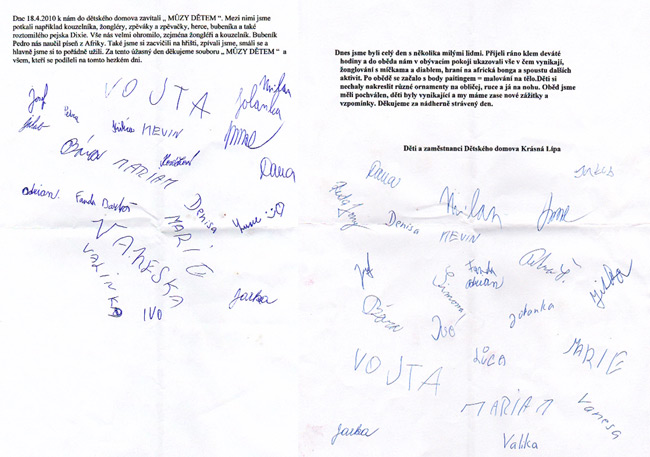 Dne 18.4.2010 k nám do dětského domova zavítali „ MŮZY DĚTEM". Mezi nimi jsme
potkali například kouzelníka, žongléry, zpěváky a zpěvačky, herce, bubeníka a také
roztomilého pejska Dixie. Vše nás velmi ohromilo, zejména žongléři a kouzelník. Bubeník
Pedro nás naučil píseň z Afriky. Také jsme si zacvičili na hřišti, zpívali jsme, smáli se a
hlavně jsme si to pořádně užili. Za tento úžasný den děkujeme souboru „ MŮZY DĚTEM " a
všem, kteří se podíleli na tomto hezkém dni.
VOJTA
Milan
Jolanka
MEVIN
MARIAM
Dana
Fanda
Denisa
MARIE
VANESKA
IVO
Jarka
Dnes jsme byli celý den s několika milými lidmi. Přijeli ráno klem deváté
hodiny a do oběda nám v obývacím pokoji ukazovali vše v čem vynikají,
žonglování s míčkama a diablem, hraní na africká bonga a spoustu dalších
aktivit. Po obědě se začalo s body paitingem = malování na tělo.Děti si
nechaly nakreslit různé ornamenty na obličej, ruce a já na nohu. Oběd jsme
měli pochválen, děti byly vynikající a my máme zase nové zážitky a
vzpomínky. Děkujeme za nádherně strávený den.
Děti a zaměstnanci Dětského domova Krásná Lípa
Dana
Milan
Denisa
MEVIN
Fanda
Simona
Zdenka
Ivo
LUCA
MARIE
VOJTA
MARIAM
Vanesa
Jarka
Valika